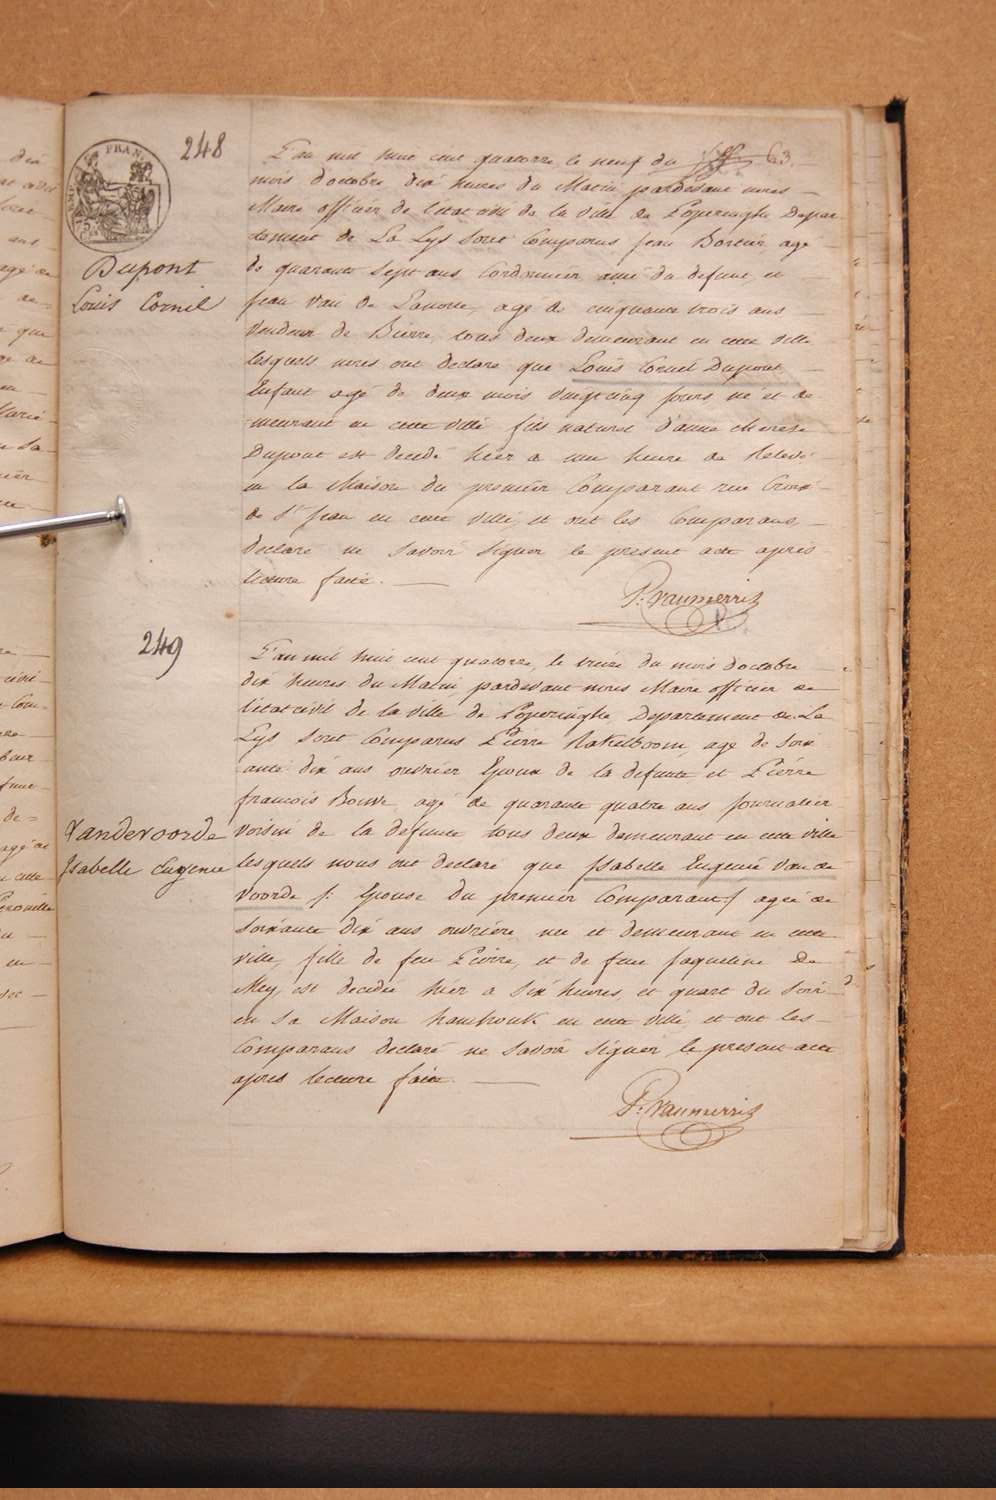 248
63.
L'an mil huit cent quatorze le neuf du
mois d'octobre dix heures du Matin pardevant nous
Maire officier de l'état civil de la ville de Poperinghe Depar-
tement de La Lys sont Comparus Jean Bortier, agé
de quarante sept ans Cordonnier, ami du defunt, et
Jean Van de Lanotte, agé de cinquante trois ans
Vendeur de Bierre, tous deux demeurant en cette ville
lesquels nous ont declaré que Louis Cornil Dupont
Enfant agé de deux mois vingtcinq jours né et de-
meurant en cette ville fils naturel d'anne therese
Dupont est decedé hier a une heure de Relevé
en la Maison du premier Comparant rue Croix
de St Jean en cette ville, et ont les Comparans
declaré ne savoir signer le present acte après
lecture faite.
P. Vanmerris
Dupont
Louis Cornil
249
L'an mil huit cent quatorze, le treize du mois d'octobre
dix heures du Matin, pardevant nous Maire officier de
l'état civil de la ville de Poperinghe, Departement de La
Lys sont Comparus Pierre Rakelboom, agé de soix-
ante dix ans ouvrier Epoux de la defunte et Pierre
francois Bouve, agé de quarante quatre ans journalier
voisin de la defunte tous deux demeurant en cette ville
lesquels nous ont declaré que Isabelle Eugenie Van de
Voorde /: Epouse du premier Comparant / agée de
soixante dix ans ouvrière, née et demeurant en cette
ville, fille de feu Pierre, et de feue Jaqueline De
Mey, est decedée hier a six heures et quart du soir
en sa Maison hamhouk en cette ville et ont les
Comparans declaré ne savoir signer le present acte
après lecture faite.
P. Vanmerris
Vandevoorde
Isabelle Eugenie